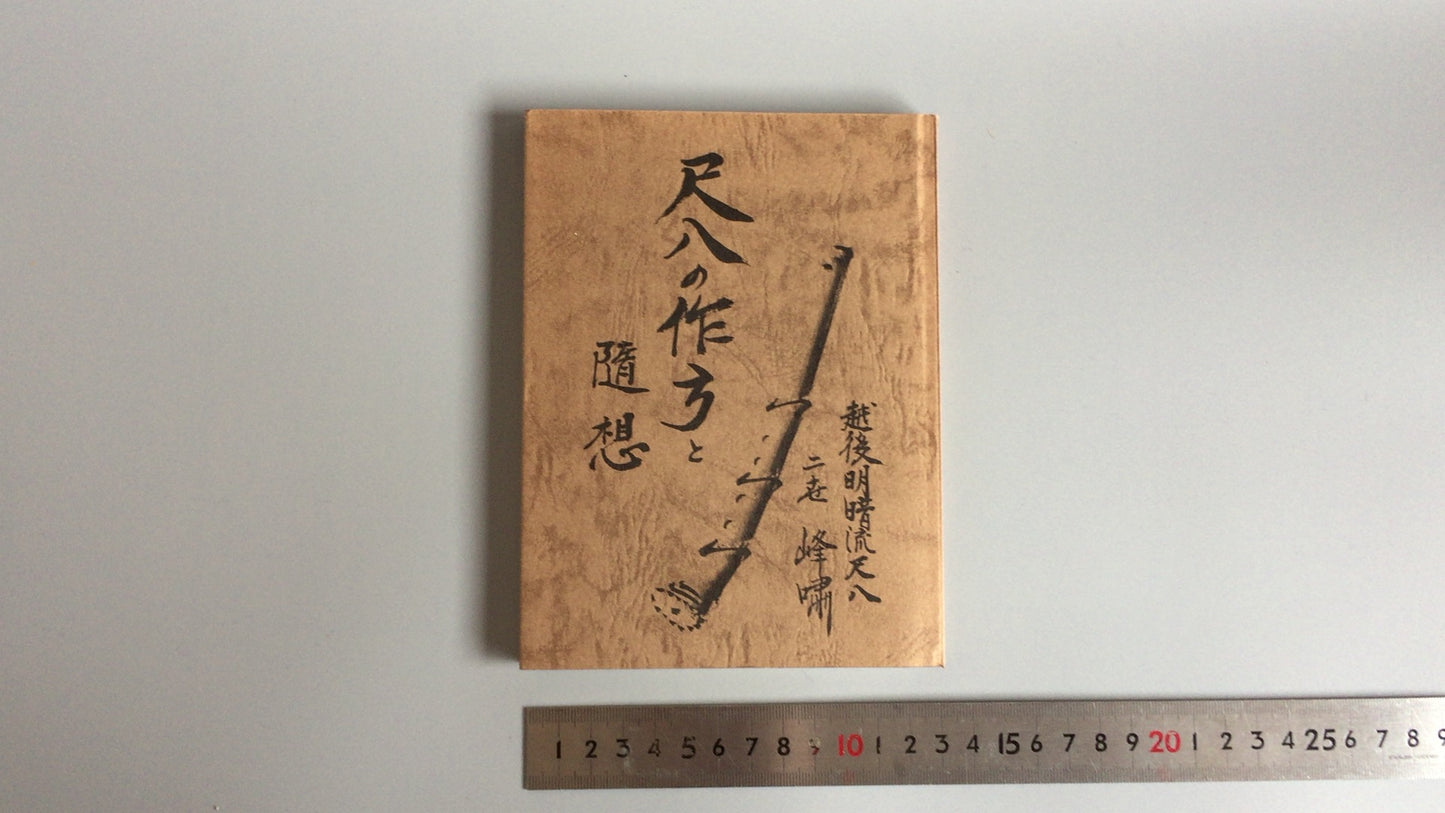 尺八の作方と
隨想
越後明暗流尺八
二世 峰嘯
1 2 3 4 5 6 7 8 9 10 1 2 3 4 15 6 7 8 9 20 1 2 3 4 25 6 7 8 9